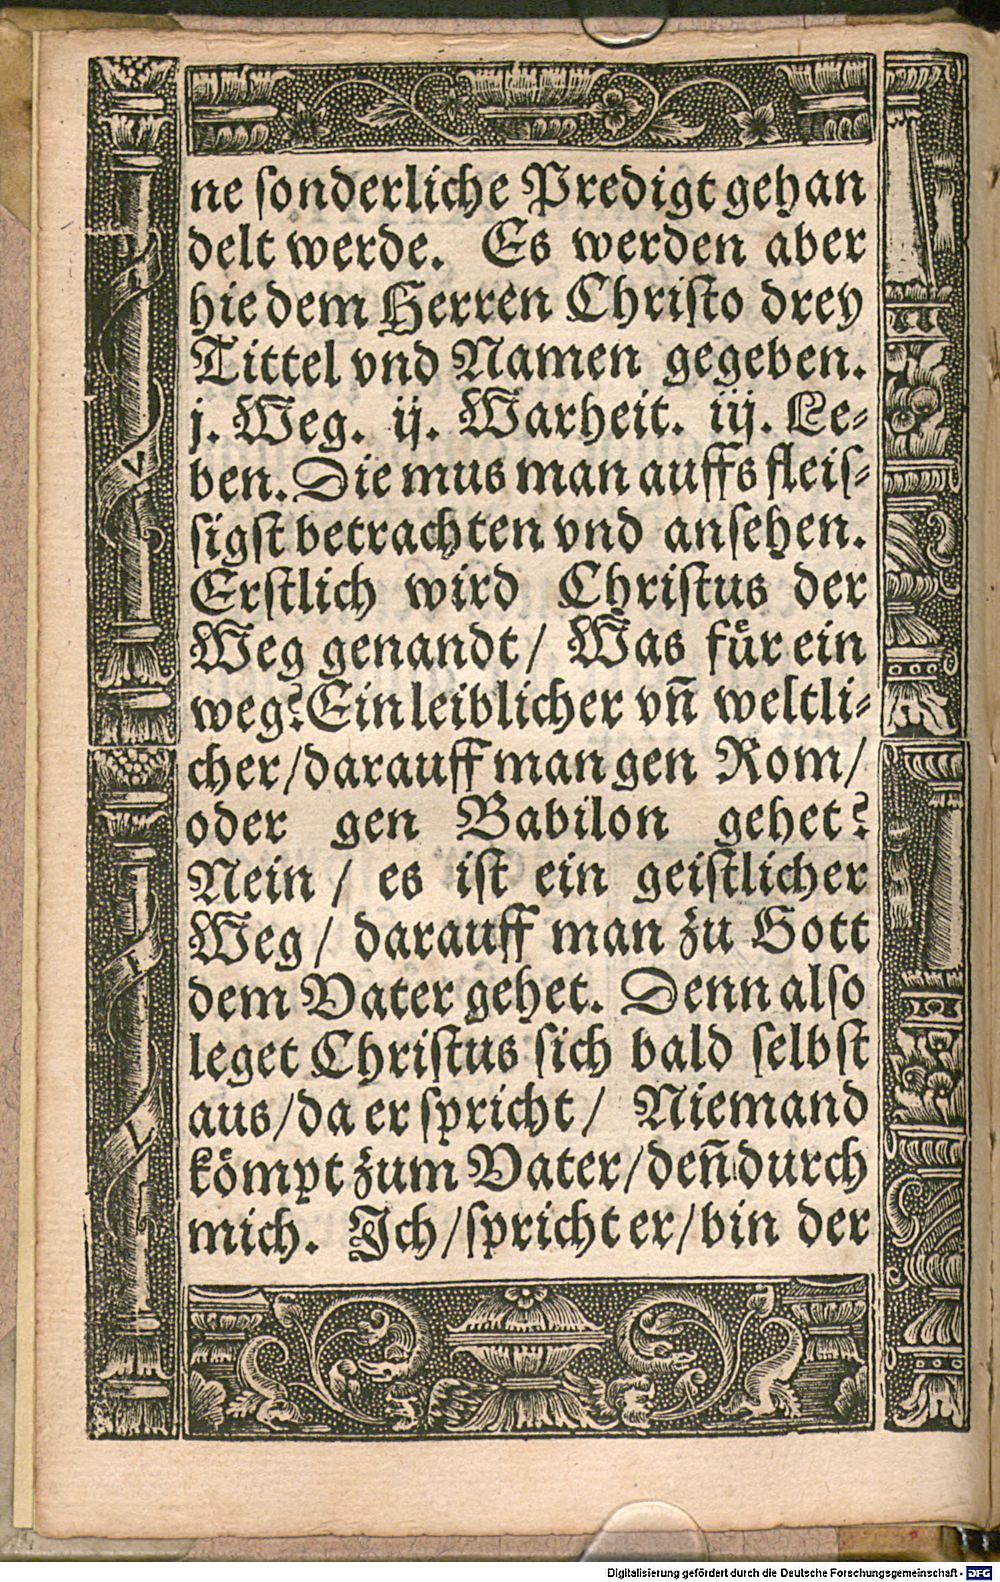 ne ſonderliche Predigt gehan
delt werde. Es werden aber
hie dem Herren Chriſto drey
Tittel vnd Namen gegeben.
j. Weg. ij. Warheit. iij. Le⸗
ben. Die mus man auffs fleiſ⸗
ſigſt betrachten vnd anſehen.
Erſtlich wird Chriſtus der
Weg genandt/ Was fuͤr ein
weg? Ein leiblicher vñ weltli⸗
cher/darauff man gen Rom/
oder gen Babilon gehet?
Nein/ es iſt ein geiſtlicher
Weg/ darauff man zu Gott
dem Vater gehet. Denn alſo
leget Chriſtus ſich bald ſelbſt
aus/da er ſpricht/ Niemand
koͤmpt zum Vater/deñ durch
mich. Ich/ſpricht er/bin der
Digitalisierung gefördert durch die Deutsche Forschungsgemeinschaft - DFG